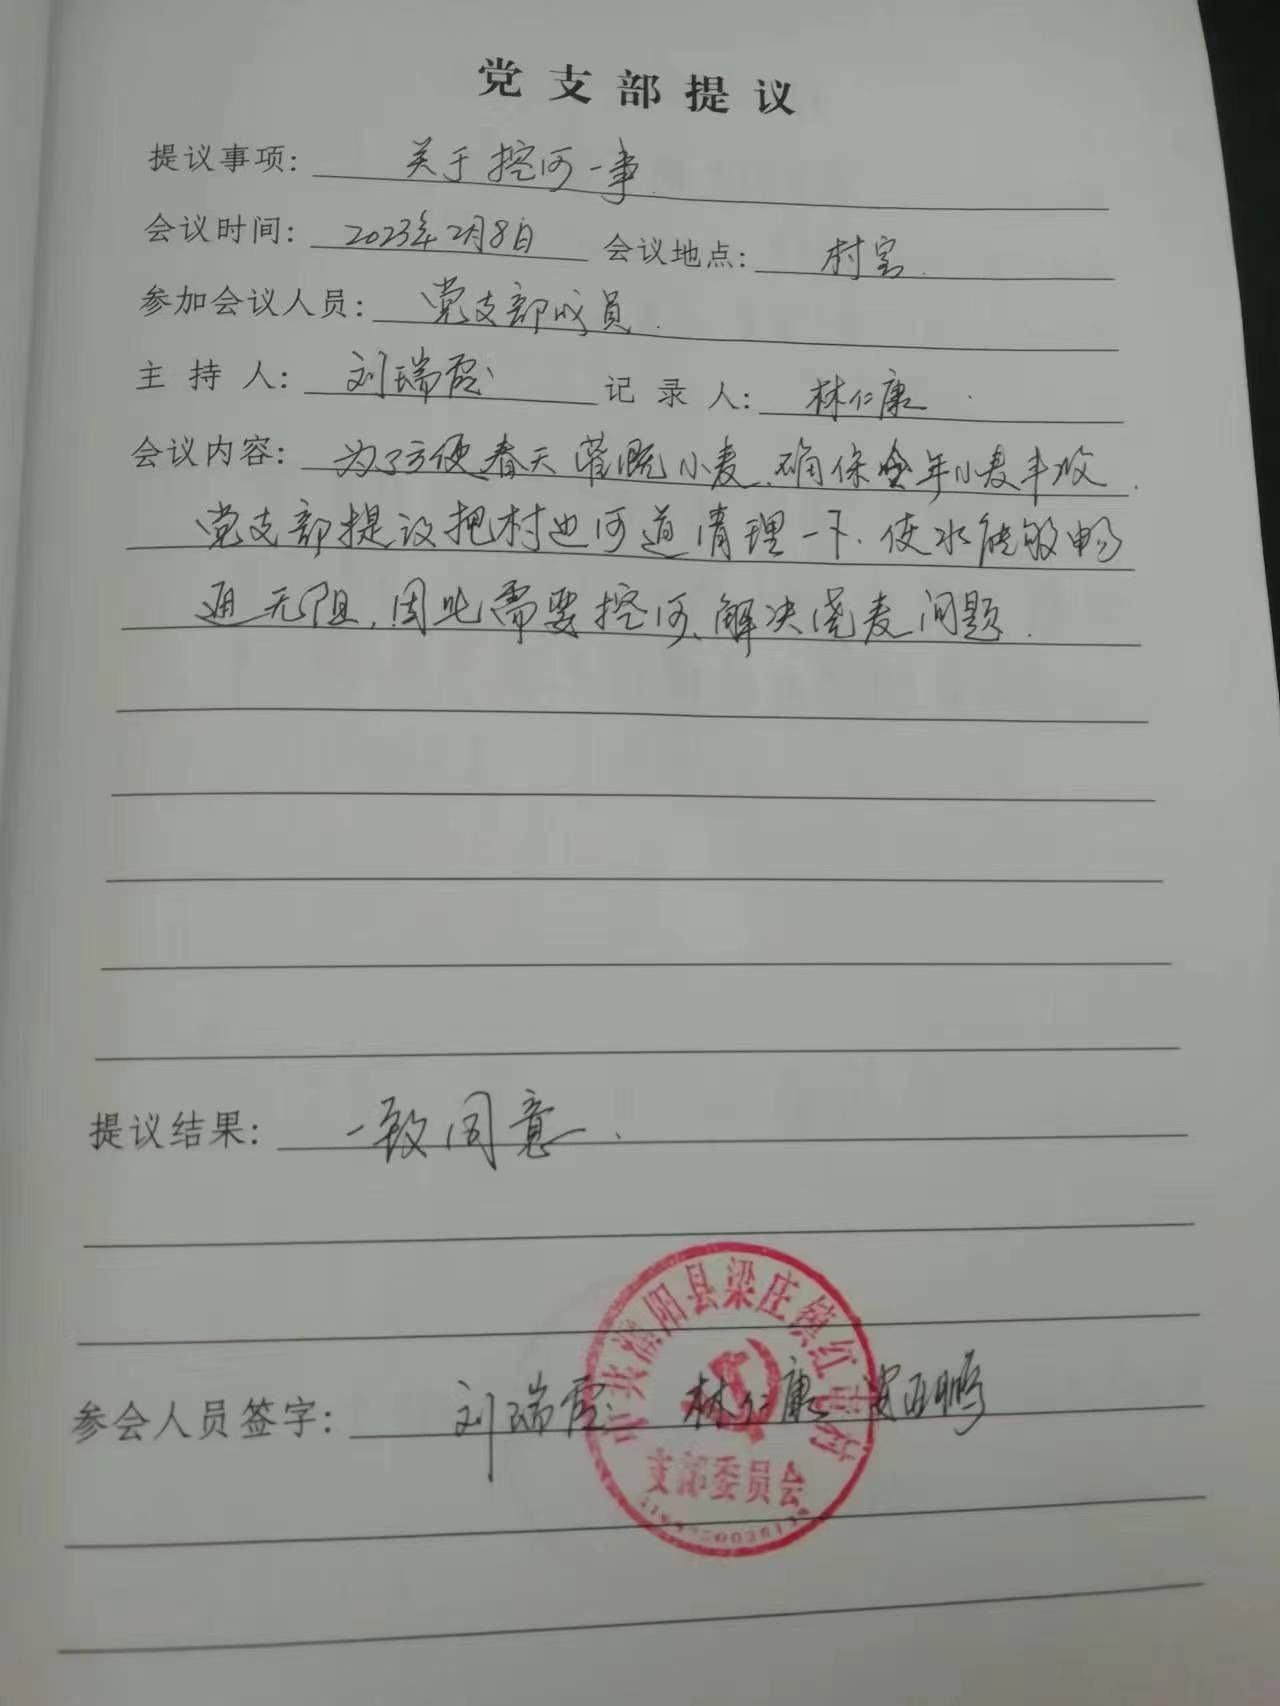 党支部提议
提议事项: 关于挖河一事.
会议时间: 2023年2月8日 会议地点: 村室.
参加会议人员: 党支部成员.
主持人: 刘瑞霞 记录人: 林仁康.
会议内容: 为了方便春天灌溉小麦、确保全年小麦丰收.
党支部提议把村边河道清理一下、使水能够畅
通无阻, 因此需要挖河、解决浇麦问题.
提议结果: 一致同意.
中共濮阳县梁庄镇红
参会人员签字: 刘瑞霞 林仁康
支部委员会